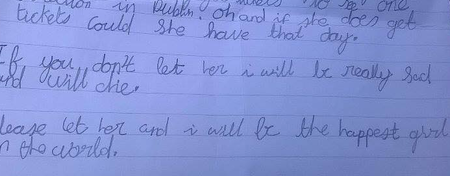 in Dublin. Oh and if she does get
tickets could she have that day.
If you don't let her i will be really sad
and will die.
lease let her and i will be the happest girl
n the world.